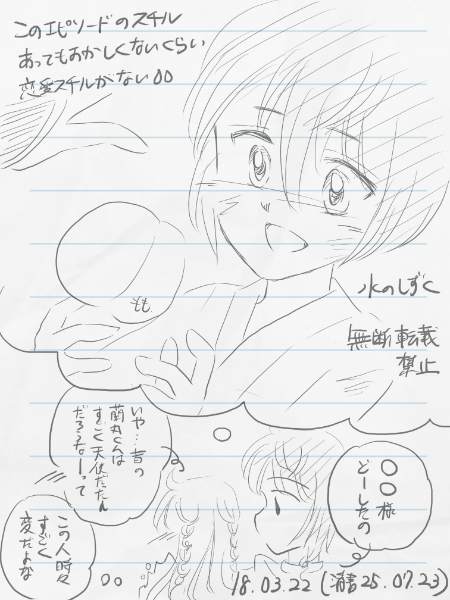 このエピソードのスチル
あってもおかしくないくらい
恋愛スチルがない00
もも
水のしずく
無断転載
禁止
〇〇様
どーしたの
いや…昔の
蘭丸くんは
すごく天使だったん
だろうなーって
この人時々
すごく
変だよな
18.03.22(清書25.07.23)